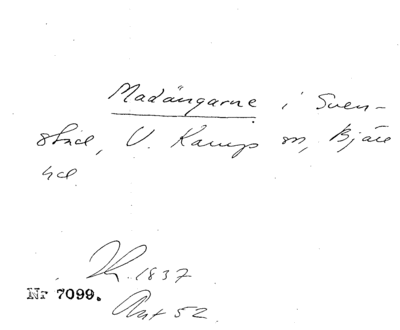 Madängarne i Sven-
stad, V. Karup sn, Bjäre
hd.
1837
Nr 7099.
Akt 52.